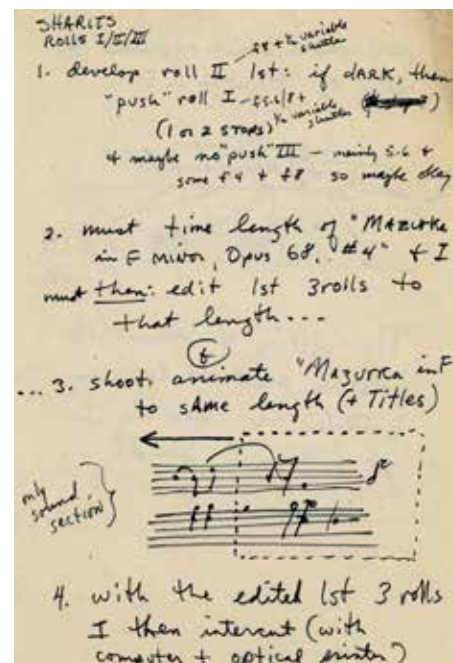 SHARITS
ROLLS I/II/III
f8 + 1/2 variable
shutter
1. develop roll II 1st: if dARK, then
"push" roll I — f5.6/8+
1/2 variable
shutter
(1 or 2 STOPS)
& maybe no "push" III — mainly 5.6 &
some f4 + f8 so maybe okay
2. must time length of "MAZURKA
in F MINOR, Opus 68, #4" & I
must then: edit 1st 3 rolls to
that length...
&
... 3. shoot animate "Mazurka in F
to sAme length (+ Titles)
only
sound
section
4. with the edited 1st 3 rolls
I then intercut (with
computer + optical printer)